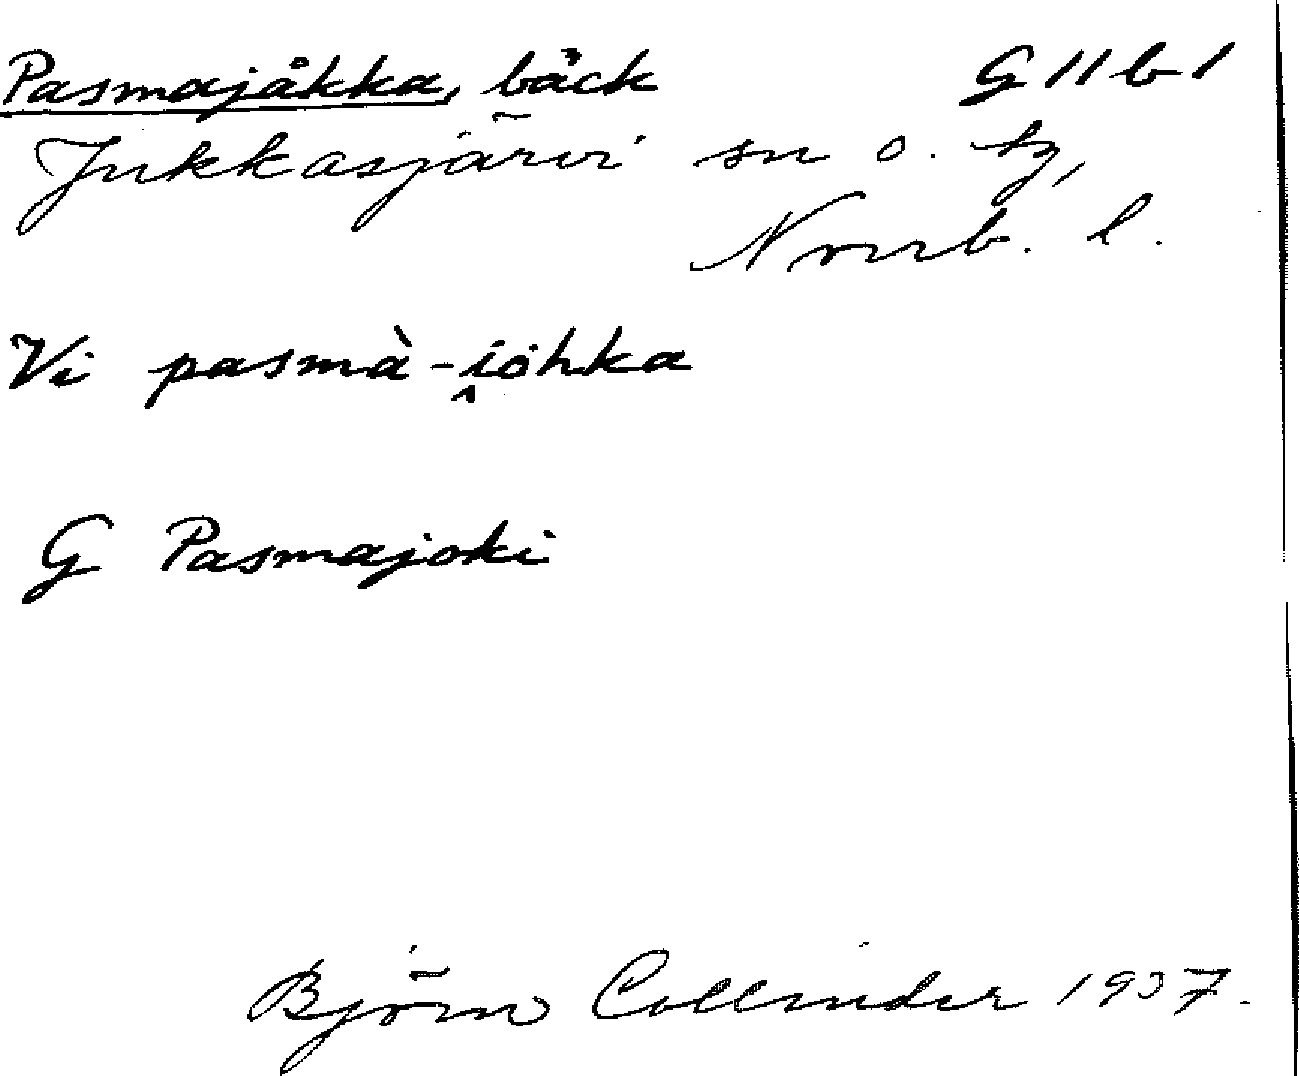 Pasmajåkka, bäck G 11 b 1
Jukkasjärvi sn o. tg,
Norrb. l.
Vi pasmà-i̭ohka
G Pasmajoki
Björn Collinder 1937.